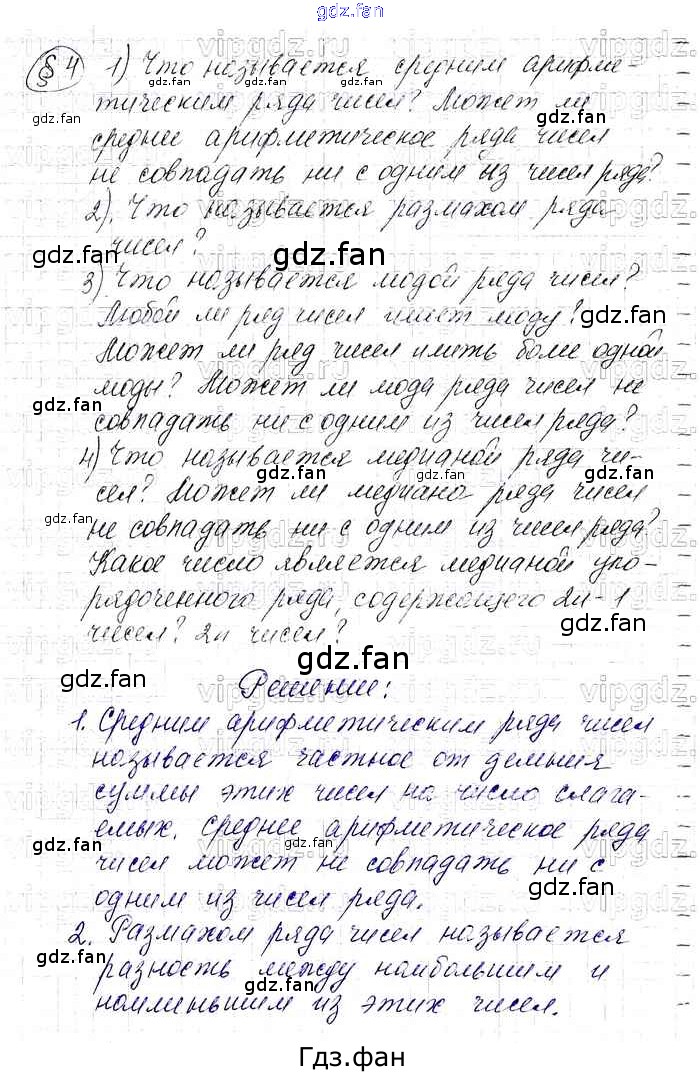 gdz.fan
§ 4 1) Что называется средним арифме-
тическим ряда чисел? Может ли
среднее арифметическое ряда чисел
не совпадать ни с одним из чисел ряда?
2). Что называется размахом ряда
чисел?
3) Что называется модой ряда чисел?
Любой ли ряд чисел имеет моду?
Может ли ряд чисел иметь более одной
моды? Может ли мода ряда чисел не
совпадать ни с одним из чисел ряда?
4) Что называется медианой ряда чи-
сел? Может ли медиана ряда чисел
не совпадать ни с одним из чисел ряда?
Какое число является медианой упо-
рядоченного ряда, содержащего 2n-1
чисел? 2n чисел?
Решение:
1. Средним арифметическим ряда чисел
называется частное от деления
суммы этих чисел на число слага-
емых. Среднее арифметическое ряда
чисел может не совпадать ни с
одним из чисел ряда.
2. Размахом ряда чисел называется
разность между наибольшим и
наименьшим из этих чисел.
Гдз.фан